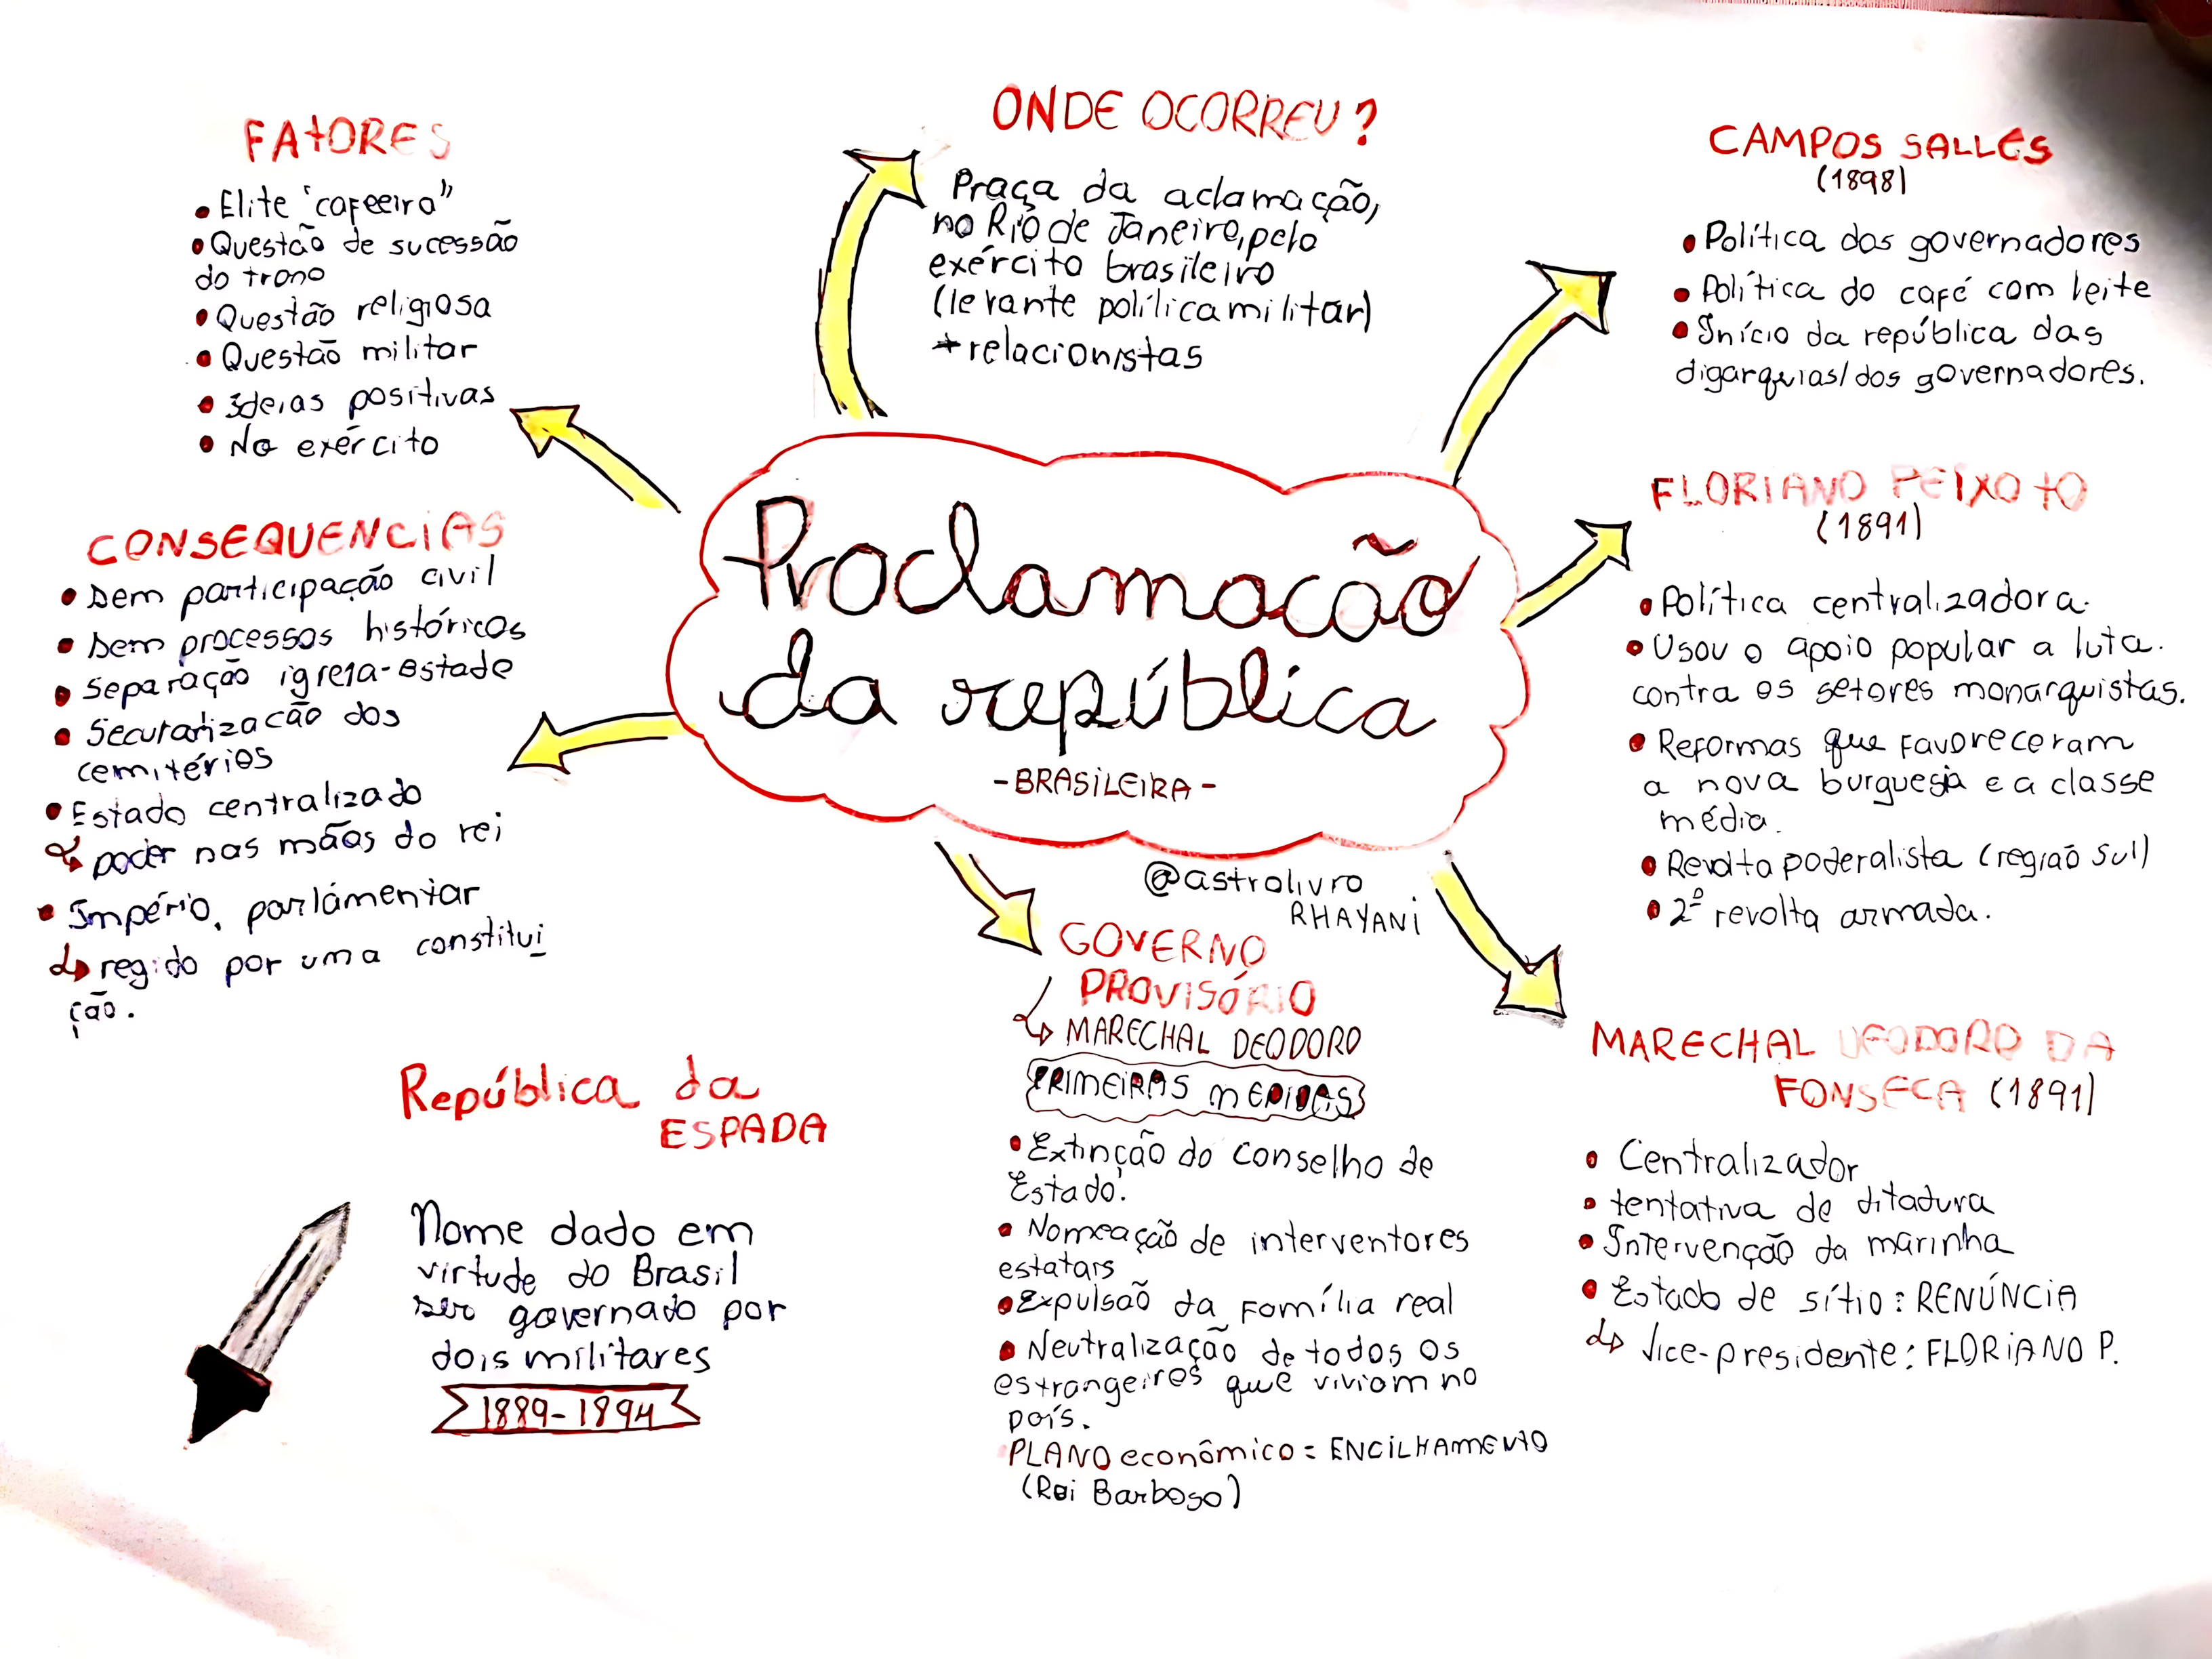 FATORES
• Elite "cafeeira"
• Questão de sucessão
do trono
• Questão religiosa
• Questão militar
• Ideias positivas
• No exército
ONDE OCORREU?
Praça da aclamação,
no Rio de Janeiro, pelo
exército brasileiro
(levante políticamilitar)
+ relacionistas
CAMPOS SALLES
(1898)
• Política dos governadores
• Política do café com leite
• Início da república das
oligarquias/dos governadores.
CONSEQUENCIAS
• Sem participação civil
• Sem processos históricos
• Separação igreja-Estado
• Secularização dos
cemitérios
• Estado centralizado
↳ poder nas mãos do rei
• Império, parlamentar
↳ regido por uma constitui
ção.
Proclamacão
da república
-BRASILEIRA-
@astrolivro
RHAYANI
FLORIANO PEIXOTO
(1891)
• Política centralizadora.
• Usou o apoio popular a luta.
contra os setores monarquistas.
• Reformas que favoreceram
a nova burguesia e a classe
média.
• Revolta poderalista (região sul)
• 2º revolta armada.
República da
ESPADA
Nome dado em
virtude do Brasil
ser governado por
dois militares
1889-1894
GOVERNO
PROVISÓRIO
↳ MARECHAL DEODORO
PRIMEIRAS MEDIDAS
• Extinção do conselho de
Estado.
• Nomeação de interventores
estatais
• Expulsão da Família real
• Neutralização de todos os
estrangeiros que viviam no
país.
PLANO econômico = ENCILHAMENTO
(Rui Barboso)
MARECHAL DEODORO DA
FONSECA (1891)
• Centralizador
• tentativa de ditadura
• Intervenção da marinha
• Estado de sítio: RENÚNCIA
↳ Vice-presidente: FLORIANO P.